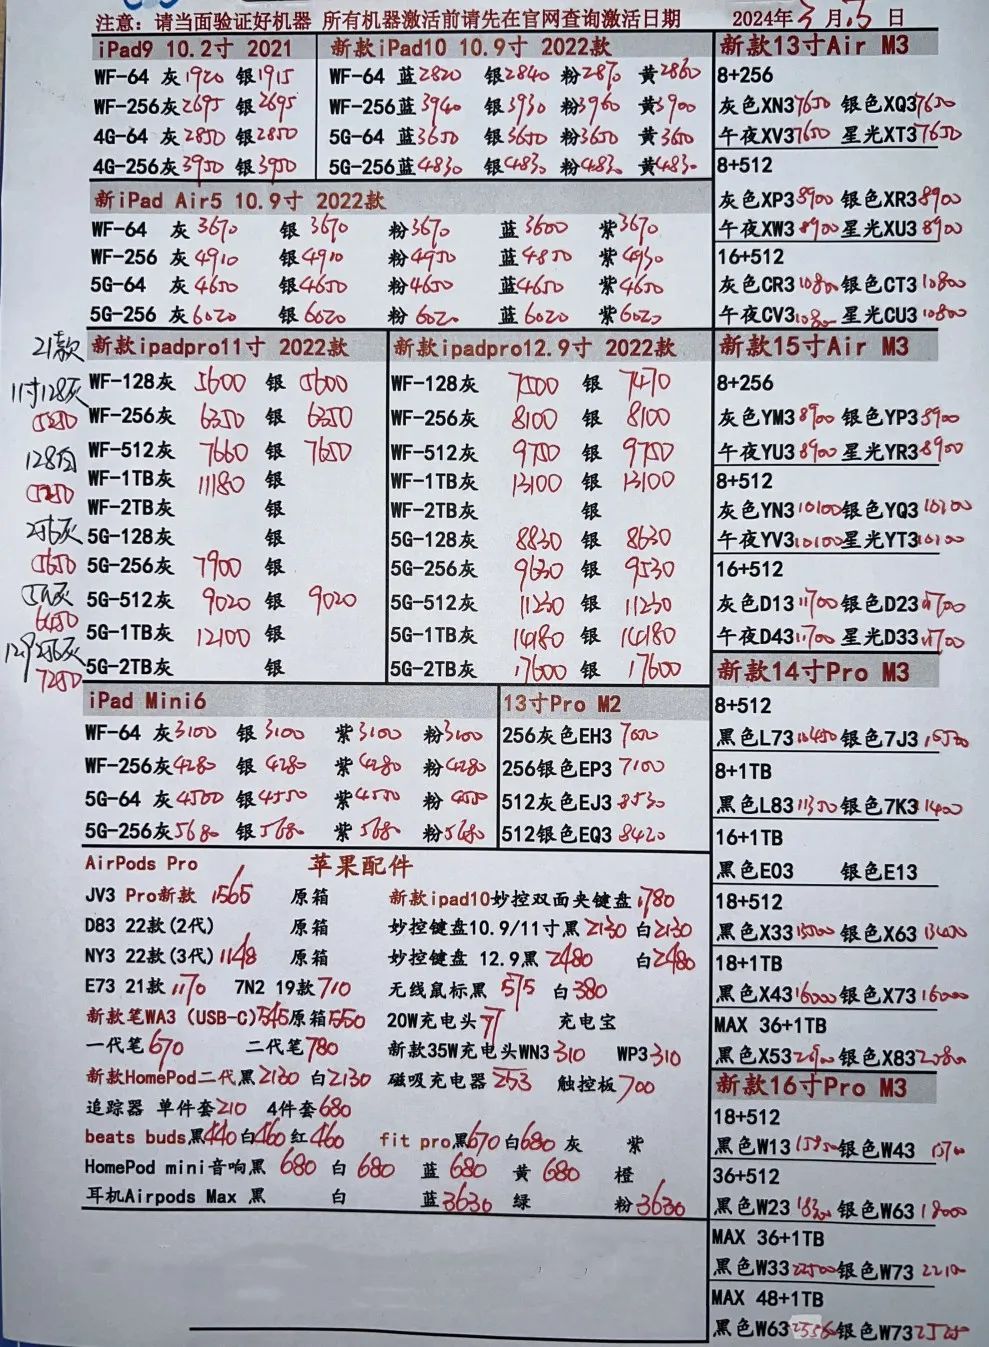 注意：请当面验证好机器 所有机器激活前请先在官网查询激活日期 2024年3月 日
iPad9 10.2寸 2021
WF-64 灰1920 银1915
WF-256灰2695 银2695
4G-64 灰2850 银2850
4G-256灰3950 银3950
新款iPad10 10.9寸 2022款
WF-64 蓝2820 银2840 粉2870 黄2860
WF-256蓝3940 银3930 粉3960 黄3900
5G-64 蓝3650 银3650 粉3650 黄3650
5G-256蓝4830 银4830 粉4830 黄4830
新iPad Air5 10.9寸 2022款
WF-64 灰3670 银3670 粉3670 蓝3600 紫3670
WF-256 灰4910 银4910 粉4950 蓝4850 紫4930
5G-64 灰4650 银4650 粉4650 蓝4650 紫4650
5G-256 灰6020 银6020 粉6020 蓝6020 紫6020
21款
11寸128灰
5250
128白
5250
256灰
5650
灰
6450
12.9 256灰
7250
新款ipadpro11寸 2022款
WF-128灰 5600 银 5600
WF-256灰 6350 银 6350
WF-512灰 7660 银 7650
WF-1TB灰 11180 银
WF-2TB灰 银
5G-128灰 银
5G-256灰 7900 银
5G-512灰 9020 银 9020
5G-1TB灰 12100 银
5G-2TB灰 银
新款ipadpro12.9寸 2022款
WF-128灰 7500 银 7470
WF-256灰 8100 银 8100
WF-512灰 9750 银 9750
WF-1TB灰 13100 银 13100
WF-2TB灰 银
5G-128灰 8830 银 8630
5G-256灰 9630 银 9530
5G-512灰 11230 银 11230
5G-1TB灰 14180 银 14180
5G-2TB灰 17600 银 17600
iPad Mini6
WF-64 灰3100 银3100 紫3100 粉3100
WF-256灰4280 银4280 紫4280 粉4280
5G-64 灰4560 银4550 紫4550 粉4550
5G-256灰5680 银5680 紫5680 粉5680
13寸Pro M2
256灰色EH3 7000
256银色EP3 7100
512灰色EJ3 8530
512银色EQ3 8420
AirPods Pro 苹果配件
JV3 Pro新款 1565 原箱
D83 22款(2代) 原箱
NY3 22款(3代)1148 原箱
E73 21款1170 7N2 19款710
新款笔WA3 (USB-C)545原箱550
一代笔670 二代笔780
新款HomePod二代黑2130 白2130
追踪器 单件套210 4件套680
beats buds黑440白460红460 fit pro黑670白680灰 紫
HomePod mini音响黑 680 白 680 蓝 680 黄 680 橙
耳机Airpods Max 黑 白 蓝3630 绿 粉3630
新款ipad10妙控双面夹键盘1780
妙控键盘10.9/11寸黑2130 白2130
妙控键盘 12.9黑2480 白2480
无线鼠标黑 575 白380
20W充电头77 充电宝
新款35W充电头WN3310 WP3310
磁吸充电器253 触控板700
新款13寸Air M3
8+256
灰色XN37650 银色XQ37650
午夜XV37650 星光XT37650
8+512
灰色XP38900 银色XR38900
午夜XW38900 星光XU38900
16+512
灰色CR310800 银色CT310800
午夜CV310800 星光CU310800
新款15寸Air M3
8+256
灰色YM38900 银色YP38900
午夜YU38900 星光YR38900
8+512
灰色YN310100银色YQ310100
午夜YV310100星光YT310100
16+512
灰色D1311700银色D2311700
午夜D4311700 星光D3311700
新款14寸Pro M3
8+512
黑色L73 银色7J3
8+1TB
黑色L8311350 银色7K311400
16+1TB
黑色E03 银色E13
18+512
黑色X33 银色X6313400
18+1TB
黑色X4316000 银色X7316000
MAX 36+1TB
黑色X53 银色X83
新款16寸Pro M3
18+512
黑色W13 银色W43
36+512
黑色W23 银色W6318000
MAX 36+1TB
黑色W3322500银色W73
MAX 48+1TB
黑色W63 银色W73